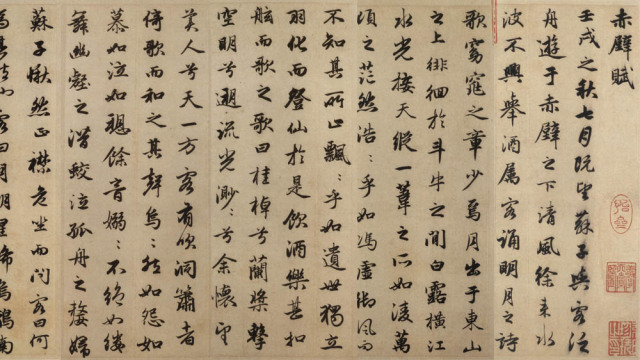 赤壁賦
壬戌之秋七月既望蘇子與客泛
舟遊于赤壁之下清風徐来水
波不興舉酒属客誦明月之詩
歌窈窕之章少焉月出于東山
之上徘徊於斗牛之間白露橫江
水光接天縱一葦之所如淩萬
頃之茫然浩〻乎如馮虛御風而
不知其所止飄〻乎如遺世獨立
羽化而登仙於是飲酒樂甚扣
舷而歌之歌曰桂棹兮蘭槳擊
空明兮遡流光渺〻兮余懷望
美人兮天一方客有吹洞簫者
倚歌而和之其聲烏〻然如怨如
慕如泣如愬餘音嫋〻不絕如縷
舞幽壑之潛蛟泣孤舟之嫠婦
蘇子愀然正襟危坐而問客曰何
客曰月明星稀烏鵲南